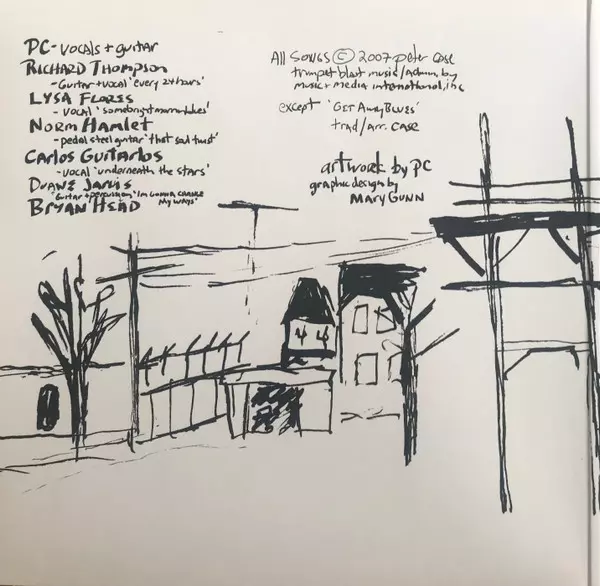 PC - vocals + guitar
RICHARD THOMPSON
- Guitar + vocal 'every 24 hours'
LYSA FLORES
- vocal 'somebright mornin blues'
NORM HAMLET
- pedal steel guitar 'that sad twist'
CARLOS GUITARLOS
- vocal 'underneath the stars'
DUANE JARVIS
- Guitar + percussion, 'Im Gonna Change
My Ways'
BRYAN HEAD
All Songs © 2007 peter case
trumpet blast music/admin. by
music + media international, inc
except 'GET AWAY BLUES'
trad/arr. CASE
artwork by PC
graphic design by
MARY GUNN